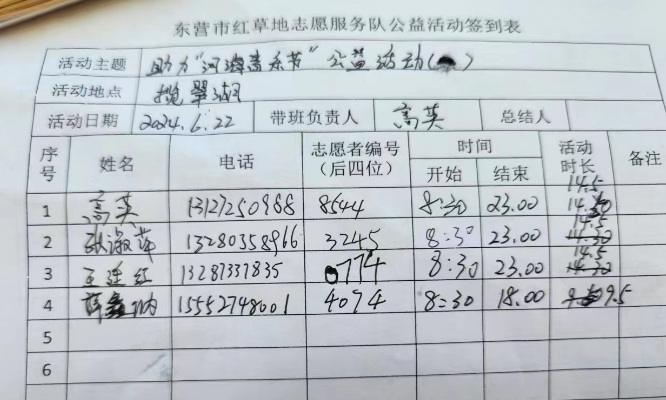 东营市红草地志愿服务队公益活动签到表
活动主题 助力"河海音乐节"公益活动( )
活动地点 揽翠湖
活动日期 2024.6.22 带班负责人 高英 总结人
序号 姓名 电话 志愿者编号（后四位） 时间 开始 结束 活动时长 备注
1 高英 13127250988 8544 8:30 23.00 14.5
2 张淑萍 13280358966 3245 8:30 23.00 14.5
3 王连红 13287337835 0774 8:30 23.00 14.5
4 薛 15552748001 4074 8:30 18.00 9.5
5
6